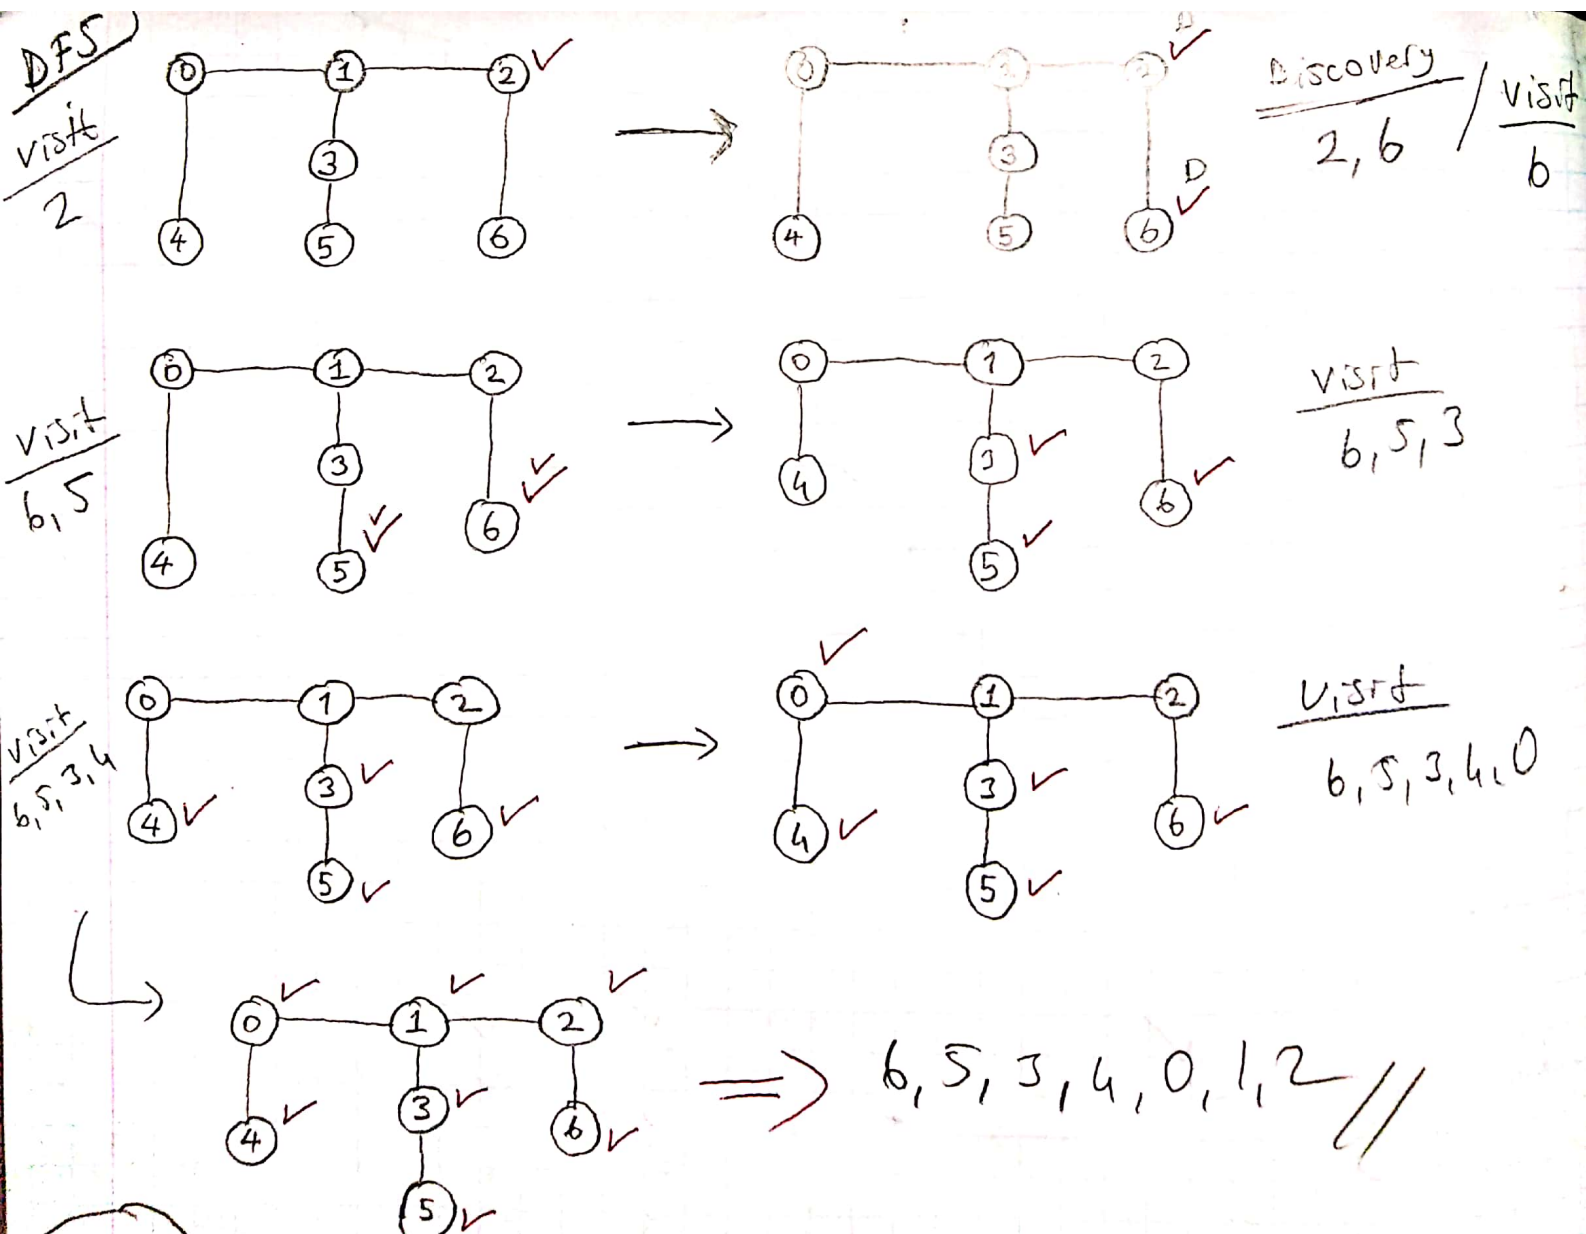 DFS
visit
2
0 1 2
3
4 5 6
D
0 1 2
3
D
4 5 6
Discovery / visit
2, 6
6
visit
6, 5
0 1 2
3
6
4 5
0 1 2
3
4
6
5
visit
6, 5, 3
visit
6, 5, 3, 4
0 1 2
3
4 6
5
0 1 2
3
4 6
5
visit
6, 5, 3, 4, 0
0 1 2
3
4 6
5
6, 5, 3, 4, 0, 1, 2 //